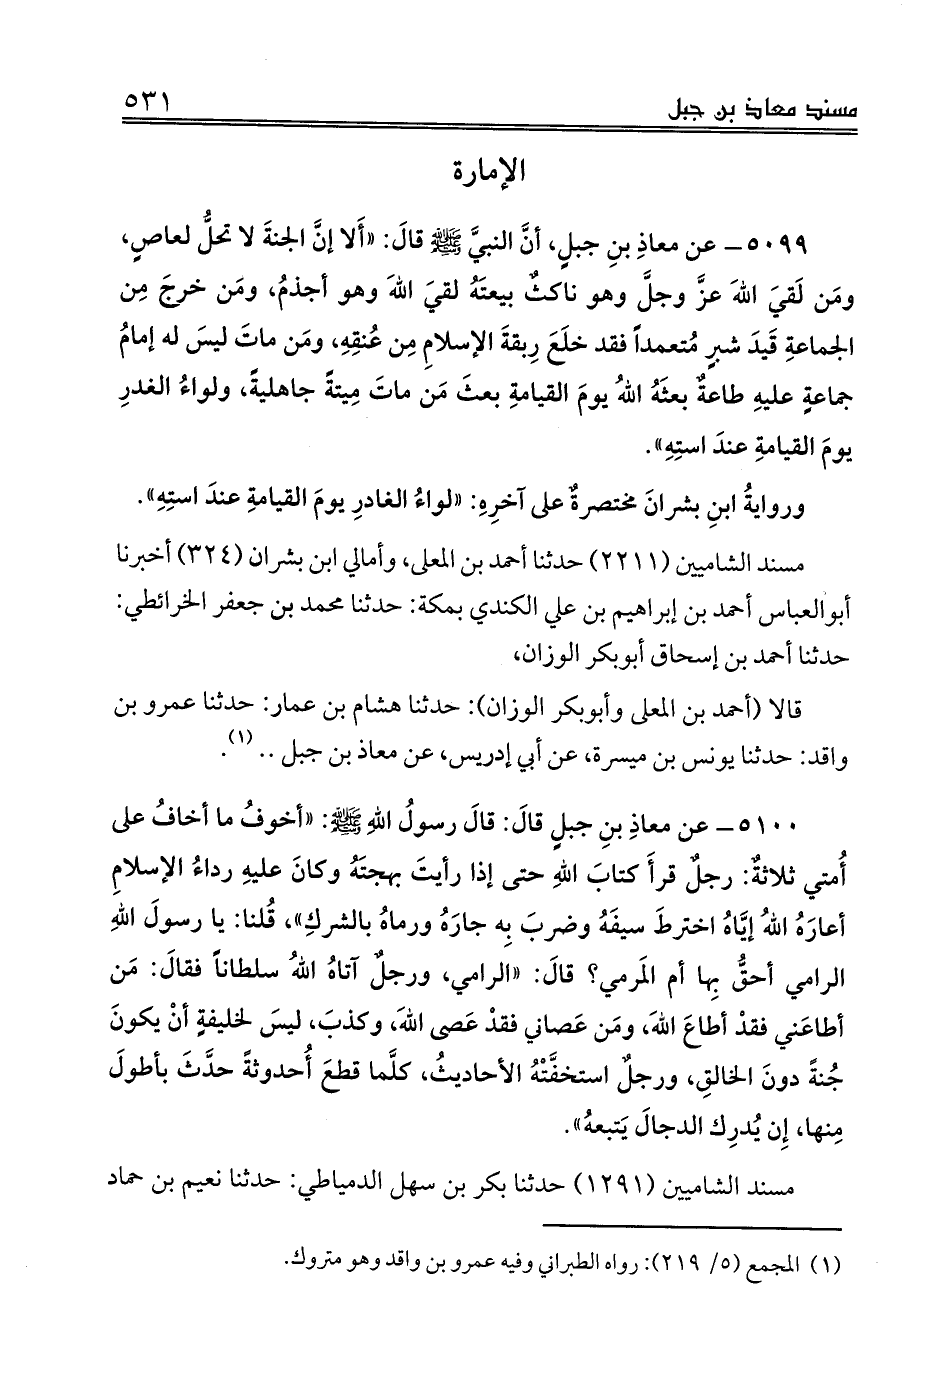 مسند معاذ بن جبل ٥٣١
الإمارة
٥٠٩٩ - عن معاذِ بنِ جبلٍ، أنَّ النبيَّ ﷺ قالَ: «أَلا إنَّ الجنةَ لا تحلُّ لعاصٍ،
ومَن لَقيَ اللهَ عزَّ وجلَّ وهو ناكثٌ بيعتَهُ لقيَ اللهَ وهو أجذمُ، ومَن خرجَ مِن
الجماعةِ قِيدَ شبرٍ مُتعمداً فقد خلَعَ رِبقةَ الإسلامِ مِن عُنقِهِ، ومَن ماتَ ليسَ له إمامُ
جماعةٍ عليهِ طاعةٌ بعثَهُ اللهُ يومَ القيامةِ بعثَ مَن ماتَ مِيتةً جاهليةً، ولواءُ الغدرِ
يومَ القيامةِ عندَ استِهِ».
وروايةُ ابنِ بشرانَ مختصرةٌ على آخرِهِ: «لواءُ الغادرِ يومَ القيامةِ عندَ استِهِ».
مسند الشاميين (٢٢١١) حدثنا أحمد بن المعلى، وأمالي ابن بشران (٣٢٤) أخبرنا
أبوالعباس أحمد بن إبراهيم بن علي الكندي بمكة: حدثنا محمد بن جعفر الخرائطي:
حدثنا أحمد بن إسحاق أبوبكر الوزان،
قالا (أحمد بن المعلى وأبوبكر الوزان): حدثنا هشام بن عمار: حدثنا عمرو بن
واقد: حدثنا يونس بن ميسرة، عن أبي إدريس، عن معاذ بن جبل .. (١).
٥١٠٠ - عن معاذِ بنِ جبلٍ قالَ: قالَ رسولُ اللهِ ﷺ: «أخوفُ ما أخافُ على
أُمتي ثلاثةٌ: رجلٌ قرأَ كتابَ اللهِ حتى إذا رأيتَ بهجتَهُ وكانَ عليهِ رداءُ الإسلامِ
أعارَهُ اللهُ إيَّاهُ اخترطَ سيفَهُ وضربَ بِه جارَهُ ورماهُ بالشركِ»، قُلنا: يا رسولَ اللهِ
الرامي أحقُّ بِها أم المَرمي؟ قالَ: «الرامي، ورجلٌ آتاهُ اللهُ سلطاناً فقالَ: مَن
أطاعَني فقدْ أطاعَ اللهَ، ومَن عصاني فقدْ عصى اللهَ، وكذبَ، ليسَ لخليفةٍ أنْ يكونَ
جُنةً دونَ الخالقِ، ورجلٌ استخفَّتْهُ الأحاديثُ، كلَّما قطعَ أُحدوثةً حدَّثَ بأطولَ
مِنها، إِن يُدرِك الدجالَ يَتبعهُ».
مسند الشاميين (١٢٩١) حدثنا بكر بن سهل الدمياطي: حدثنا نعيم بن حماد
(١) المجمع (٥/ ٢١٩): رواه الطبراني وفيه عمرو بن واقد وهو متروك.